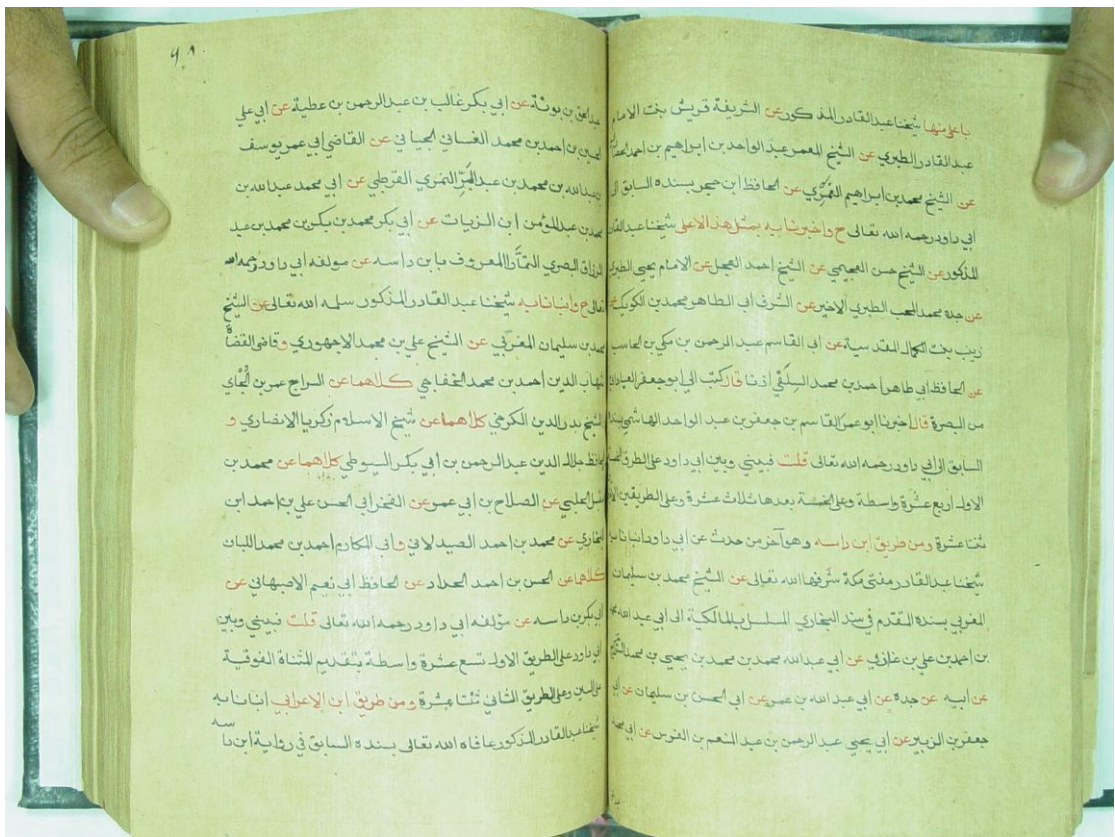 باعلى منها شيخنا عبد القادر المذكور عن الشريفة قريش بنت الامام
عبد القادر الطبري عن الشيخ المعمر عبد الواحد بن ابراهيم بن احمد
عن الشيخ محمد بن ابراهيم عن الحافظ ابن حجر بسنده السابق الى
ابي داود رحمه الله تعالى ح واخبرنا به بمثل هذا الاعلى شيخنا عبد القادر
المذكور عن الشيخ حسن العجيمي عن الشيخ احمد العجل عن الامام يحيى الطبري
عن جده محمد المحب الطبري الاخير عن الشرف ابي الطاهر محمد بن الكويك
زينب بنت الكمال المقدسية عن ابي القاسم عبد الرحمن بن مكي بن الحاسب
عن الحافظ ابي طاهر احمد بن محمد السِلَفي اذنا قال كتب الي ابو جعفر العباداني
من البصرة قال اخبرنا ابو عمر القاسم بن جعفر بن عبد الواحد الهاشمي بسنده
السابق الى ابي داود رحمه الله تعالى قلت فبيني وبين ابي داود على الطرق
الاول اربع عشرة واسطة وعلى الخمسة بعدها ثلاث عشرة وعلى الطريقين
ثنتا عشرة ومن طريق ابن داسه وهو آخر من حدث عن ابي داود انبانا به
شيخنا عبد القادر مفتي مكة شرفها الله تعالى عن الشيخ محمد بن سليمان
المغربي بسنده المتقدم في سند البخاري المسلسل بالمالكية الى ابي عبد الله محمد
بن احمد بن علي بن غازي عن ابي عبد الله محمد بن محمد بن يحيى بن محمد السَّرَّاج
عن ابيه عن جده عن ابي عبد الله بن عمر عن ابي الحسن بن سليمان عن ابي
جعفر بن الزبير عن ابي يحيى عبد الرحمن بن عبد المنعم بن الفرس عن ابي محمد
٦٨
عبد الحق بن بونة عن ابي بكر غالب بن عبد الرحمن بن عطية عن ابي علي
الحسين بن احمد بن محمد الغساني الجياني عن القاضي ابي عمر يوسف
بن عبد الله بن محمد بن عبد البَر النمري القرطبي عن ابي محمد عبد الله بن
محمد بن عبد المؤمن ابن الزيات عن ابي بكر محمد بن بكر بن محمد بن عبد
الرزاق البصري التمَّار المعروف بابن داسه عن مولفه ابي داود رحمه الله
تعالى ح وانبانا به شيخنا عبد القادر المذكور سلمه الله تعالى عن الشيخ
محمد بن سليمان المغربي عن الشيخ علي بن محمد الاجهوري وقاضي القضاة
شهاب الدين احمد بن محمد الخفاجي كلاهما عن السراج عمر بن الجاي
والشيخ بدر الدين الكرخي كلاهما عن شيخ الاسلام زكريا الانصاري و
الحافظ جلال الدين عبد الرحمن بن ابي بكر السيوطي كلاهما عن محمد بن
مقبل الحلبي عن الصلاح بن ابي عمر عن الفخر ابي الحسن علي بن احمد ابن
البخاري عن محمد بن احمد الصيدلاني وابي المكارم احمد بن محمد اللبان
كلاهما عن الحسن بن احمد الحداد عن الحافظ ابي نعيم الاصبهاني عن
ابي بكر بن داسه عن مؤلفه ابي داود رحمه الله تعالى قلت فبيني وبين
ابي داود على الطريق الاول تسع عشرة واسطة بتقديم المثناة الفوقية
على السين وعلى الطريق الثاني ثنتا عشرة ومن طريق ابن الاعرابي انبانا به
شيخنا عبد القادر المذكور عافاه الله تعالى بسنده السابق في رواية ابن داسه